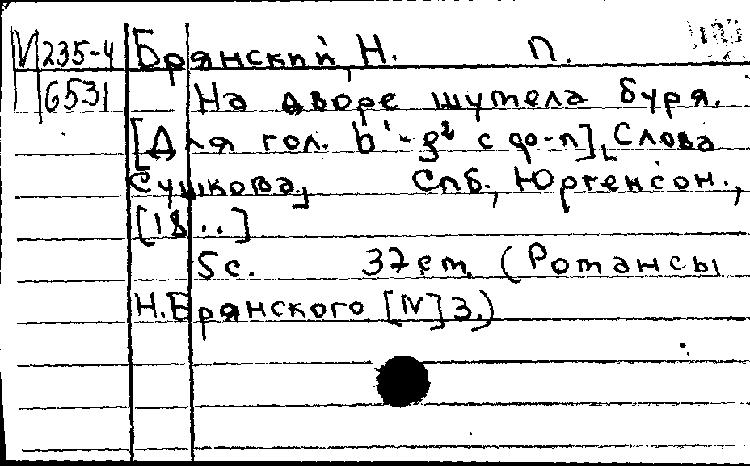 М 235-4 Брянский, Н. П.
6531 На дворе шумела буря.
[Для гол. b¹-g² с фо-п], Слова
Сушкова, Спб., Юргенсон.,
[18..]
5 с. 37 ст. (Романсы
Н. Брянского [№] 3.)